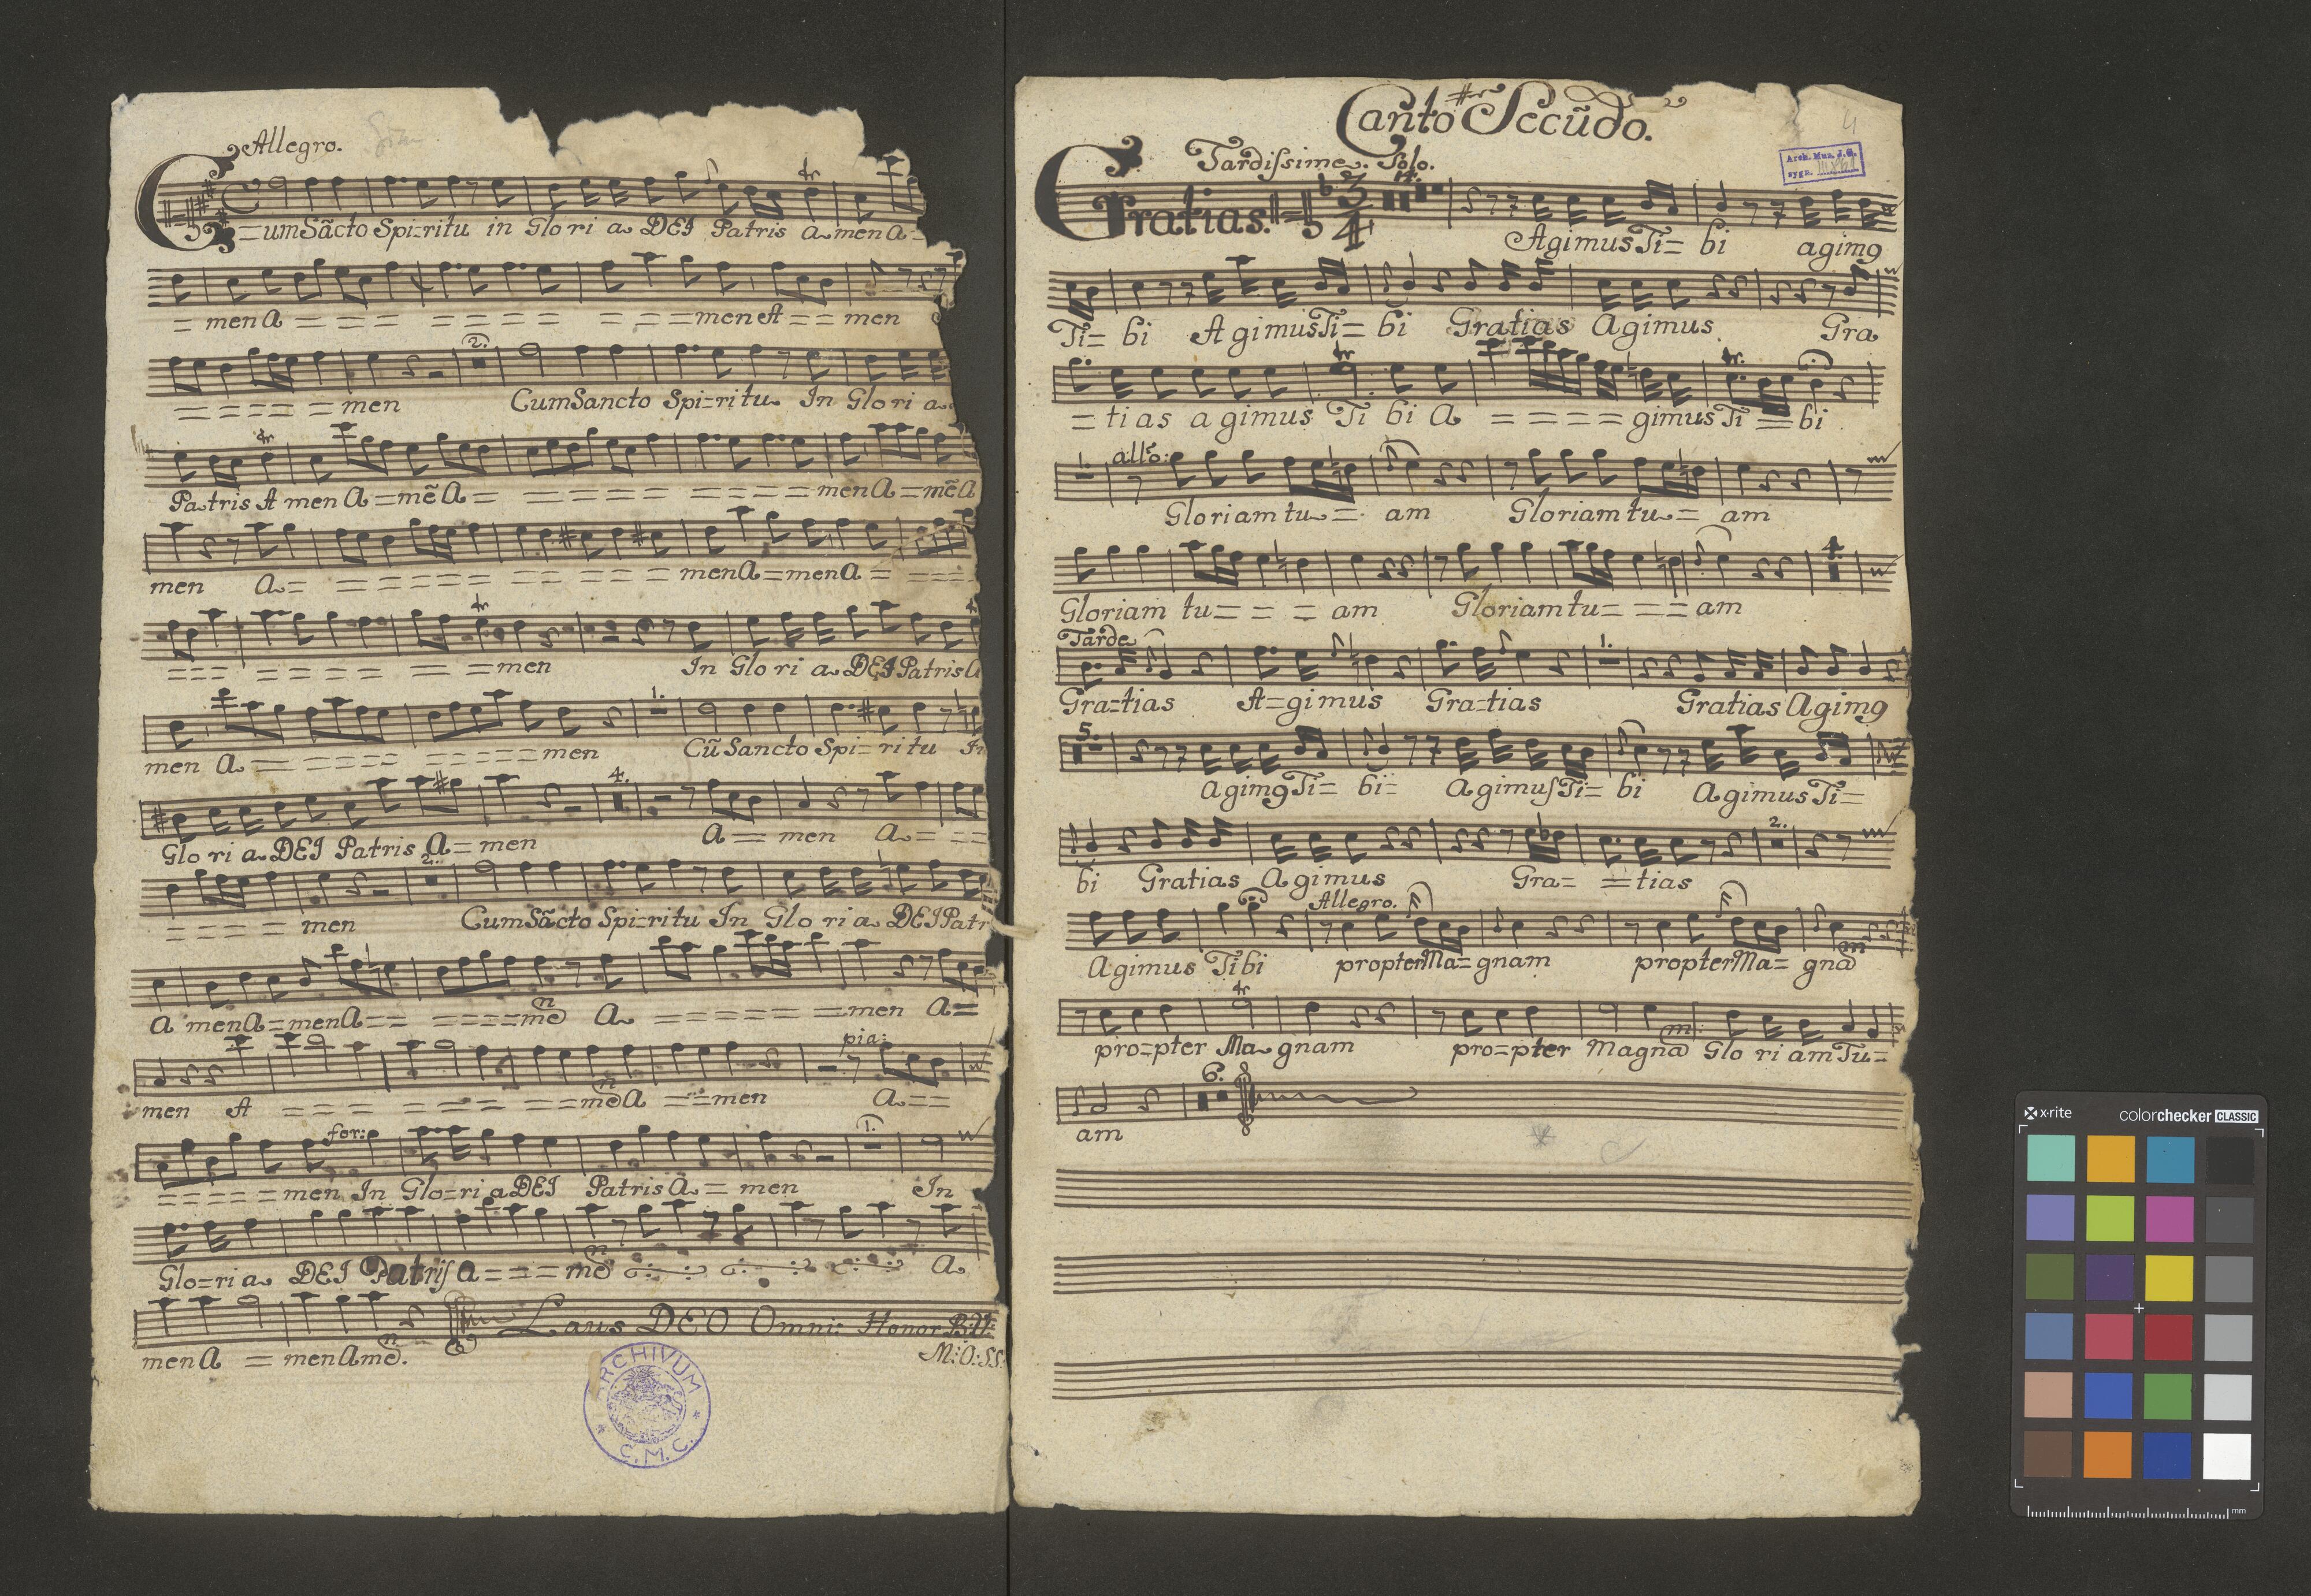 Allegro.
CumSãcto Spi=ritu in Glo ri a DEI Patris a men a =
= men a = = = = = = = = = = men A = = men
= = = = = men CumSancto Spi=ritu In Glo ri a
Patris A men a = mẽ a = = = = = = = = = = men a = mẽ a
men a = = = = = = = = = = = men a = men a = = = =
= = = = = = = = = = men In Glo ri a DEI Patris a
men a = = = = = = = = = = men Cũ Sancto Spi=ritu In
4.
Glo ri a DEI Patris a = men a = = men a = = =
2.
= = = = men CumSãcto Spi=ritu In Glo ri a DEI Patr
a men a = men a = = = = = = me a = = = = = = men a =
pia:
men A = = = = = = = = = me a = = men a = =
for: 1.
= = = = = men In Glo=ri a DEI Patris A = men In
Glo=ri a DEI Patris a = = = me a
men a = men ame. Laus DEO Omni: Honor B:V:
M:O:SS:
ARCHIVUM
* C.M.C. *
Canto Secũdo.
4
Arch. Muz. J.G.
sygn.
Tardissime. Solo.
Gratias. 3/4 14. Agimus Ti= bi agimg
Ti= bi AgimusTi= bi Gratias Agimus Gra
= tias agimus Ti bi A = = = = gimus Ti = bi
1. allo:
Gloriam tu = am Gloriam tu = am
4.
Gloriam tu = = = am Gloriam tu = = = am
Tarde 1.
Gra=tias A=gimus Gra=tias Gratias Agimg
5.
agimg Ti= bi= AgimusTi= bi Agimus Ti=
2.
bi Gratias Agimus Gra= = tias
Allegro.
Agimus Tibi propterMa= gnam propterMa= gna m
pro=pter Ma gnam pro=pter Magna m: Glo ri am Tu=
6.
am
x-rite colorchecker CLASSIC
mm